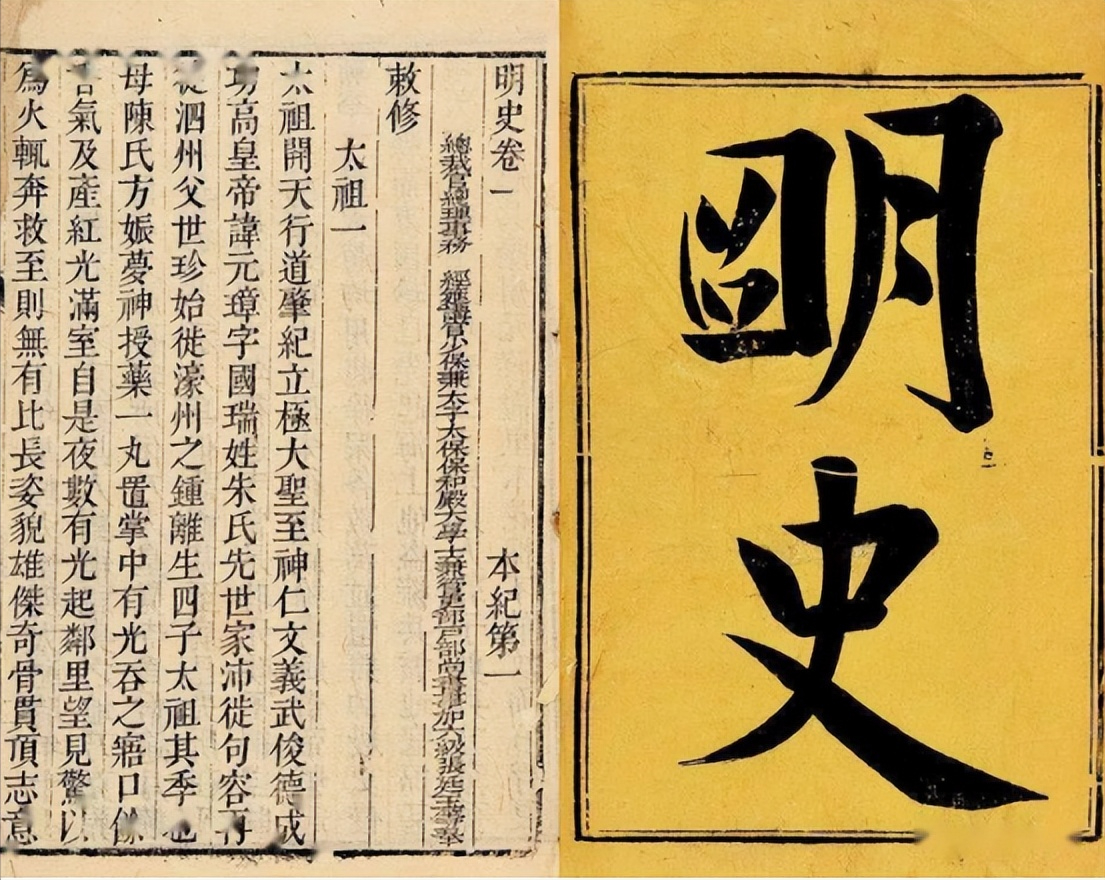 明史
明史卷一 本紀第一
總裁官總理事務 經筵講官少保兼太子太保保和殿大學士兼管吏部戶部尚書事加六級張廷玉等奉
敕修
太祖一
太祖開天行道肇紀立極大聖至神仁文義武俊德成
功高皇帝諱元璋字國瑞姓朱氏先世家沛徙句容再
徙泗州父世珍始徙濠州之鍾離生四子太祖其季也
母陳氏方娠夢神授藥一丸置掌中有光吞之寤口餘
香氣及產紅光滿室自是夜數有光起鄰里望見驚以
爲火輒奔救至則無有比長姿貌雄傑奇骨貫頂志意